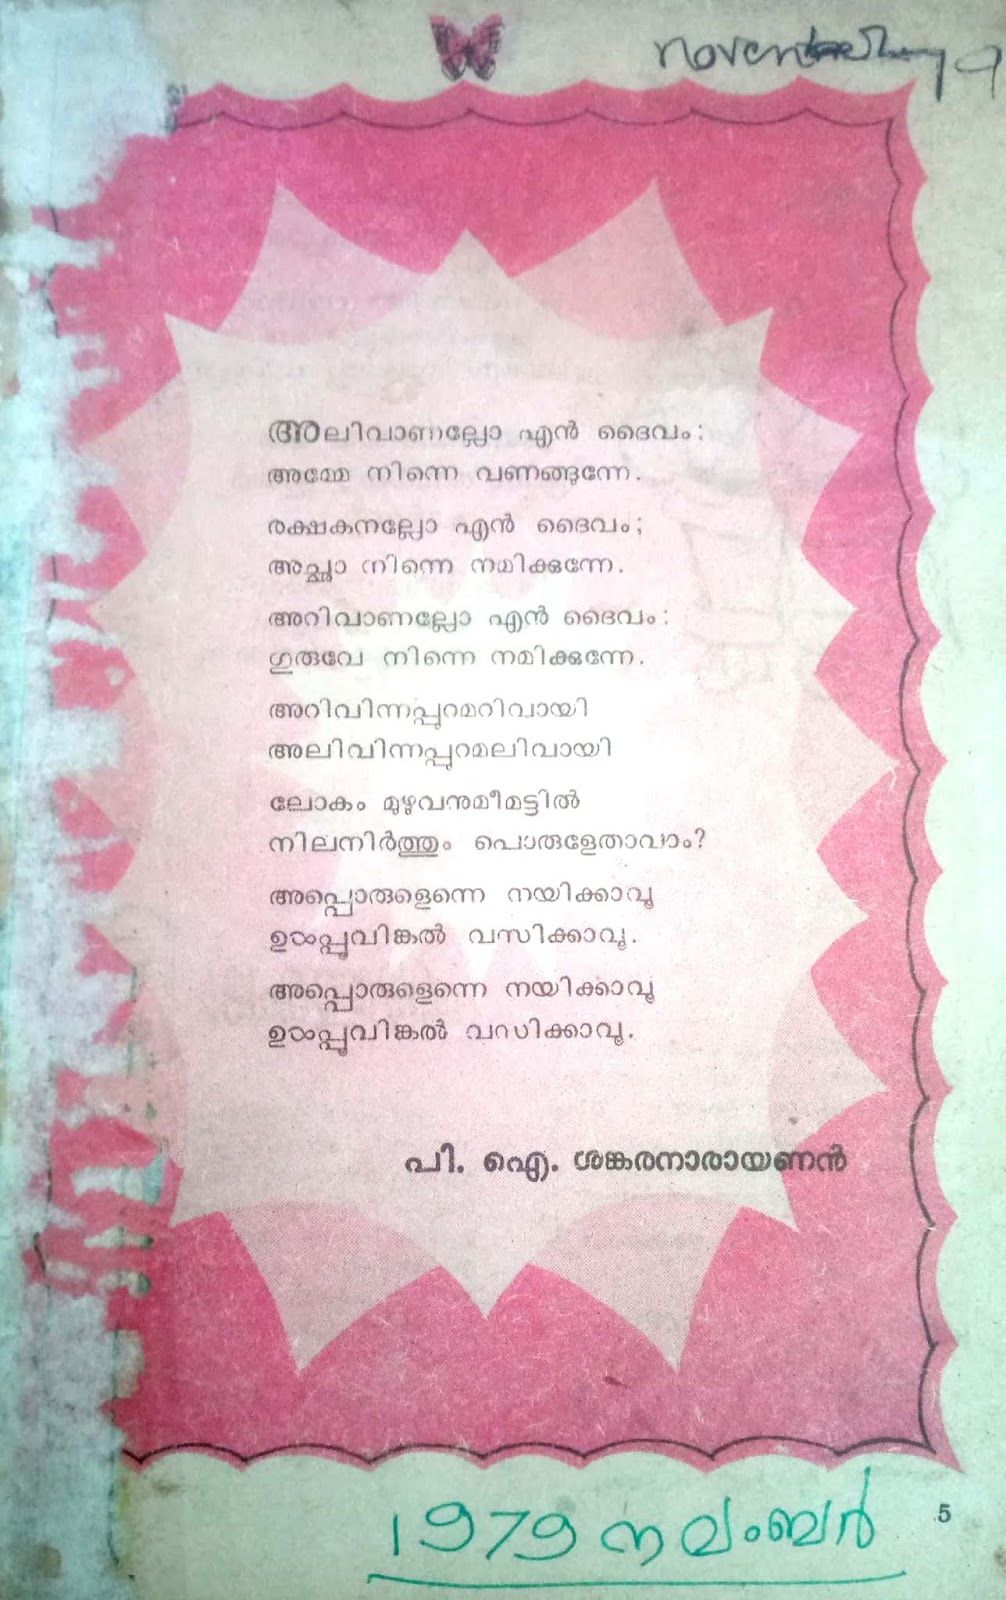 november 79
അലിവാണല്ലോ എൻ ദൈവം:
അമ്മേ നിന്നെ വണങ്ങുന്നേ.
രക്ഷകനല്ലോ എൻ ദൈവം;
അച്ഛാ നിന്നെ നമിക്കുന്നേ.
അറിവാണല്ലോ എൻ ദൈവം:
ഗുരുവേ നിന്നെ നമിക്കുന്നേ.
അറിവിന്നപ്പുറമറിവായി
അലിവിന്നപ്പുറമലിവായി
ലോകം മുഴുവനുമീമട്ടിൽ
നിലനിർത്തും പൊരുളേതാവാം?
അപ്പൊരുളെന്നെ നയിക്കാവൂ
ഉൾപ്പൂവിങ്കൽ വസിക്കാവൂ.
അപ്പൊരുളെന്നെ നയിക്കാവൂ
ഉൾപ്പൂവിങ്കൽ വസിക്കാവൂ.
പി. ഐ. ശങ്കരനാരായണൻ
5
1979 നവംബർ